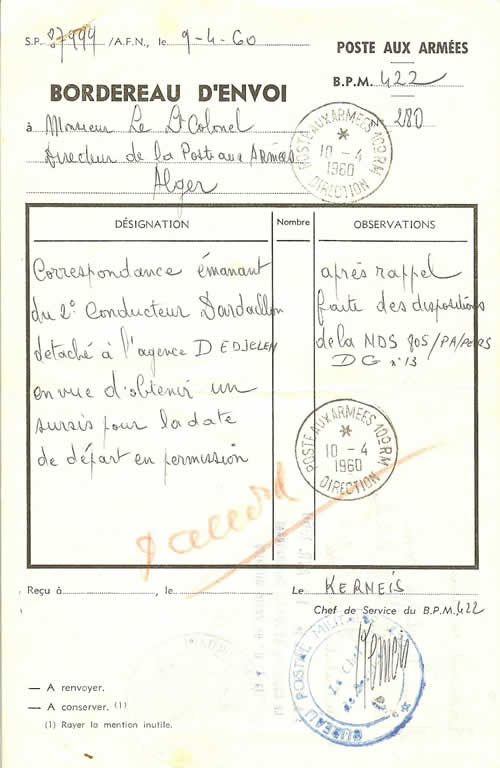 S.P. 87999 /A.F.N., le 9-4-60
POSTE AUX ARMÉES
B.P.M. 422
N° 280
BORDEREAU D'ENVOI
à Monsieur Le Lt Colonel
Directeur de la Poste aux Armées
Alger
POSTE AUX ARMEES 10e RM
*
10 - 4
1960
DIRECTION
DÉSIGNATION
Nombre
OBSERVATIONS
Correspondance émanant
du 2° Conducteur Dardaillon
détaché à l'agence DEDJELEN
en vue d'obtenir un
sursis pour la date
de départ en permission
après rappel
faite des dispositions
de la NDS 805/PA/PERS
DG n°13
POSTE AUX ARMEES 10e RM
*
10 - 4
1960
DIRECTION
d'accord
Reçu à, le
Le KERNEIS
Chef de Service du B.P.M. 422
BUREAU POSTAL MILIT
Kerneis
— A renvoyer.
— A conserver. (1)
(1) Rayer la mention inutile.